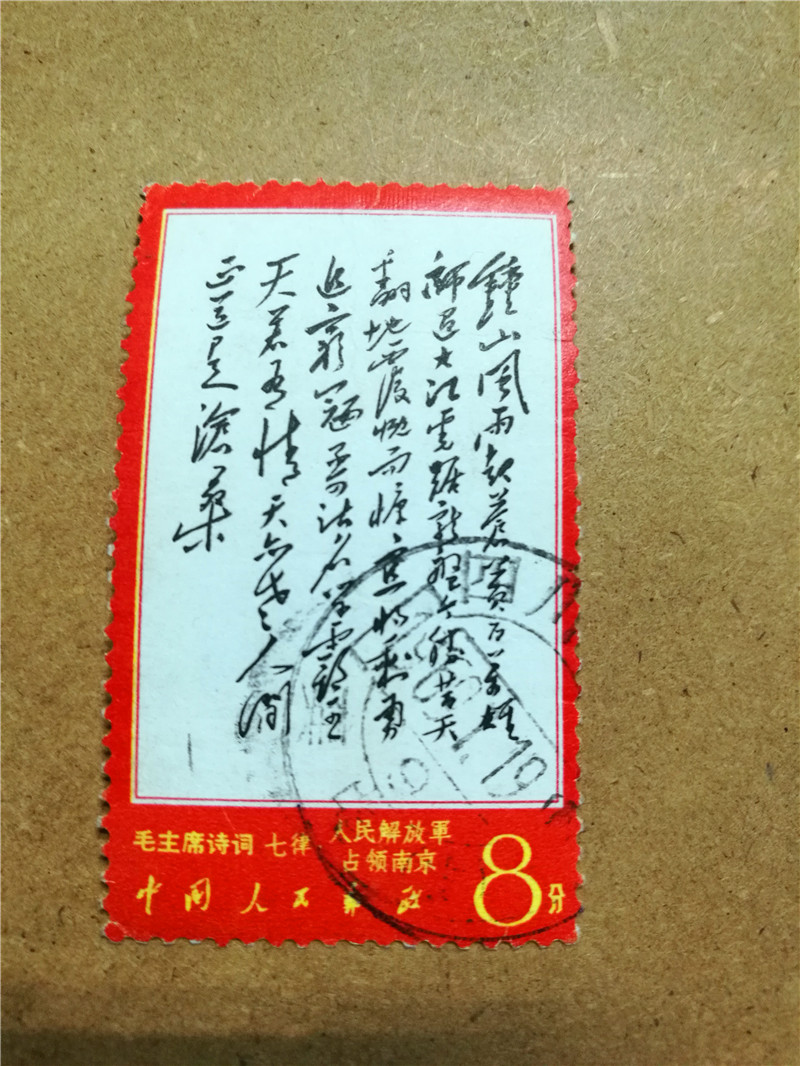 鐘山風雨起蒼黄百萬雄
師過大江虎踞龍盤今勝昔天
翻地覆慨而慷宜將剩勇
追窮寇不可沽名學霸王
天若有情天亦老人间
正道是滄桑
毛主席诗词 七律 人民解放軍
占领南京
中國人民郵政
8分
四川